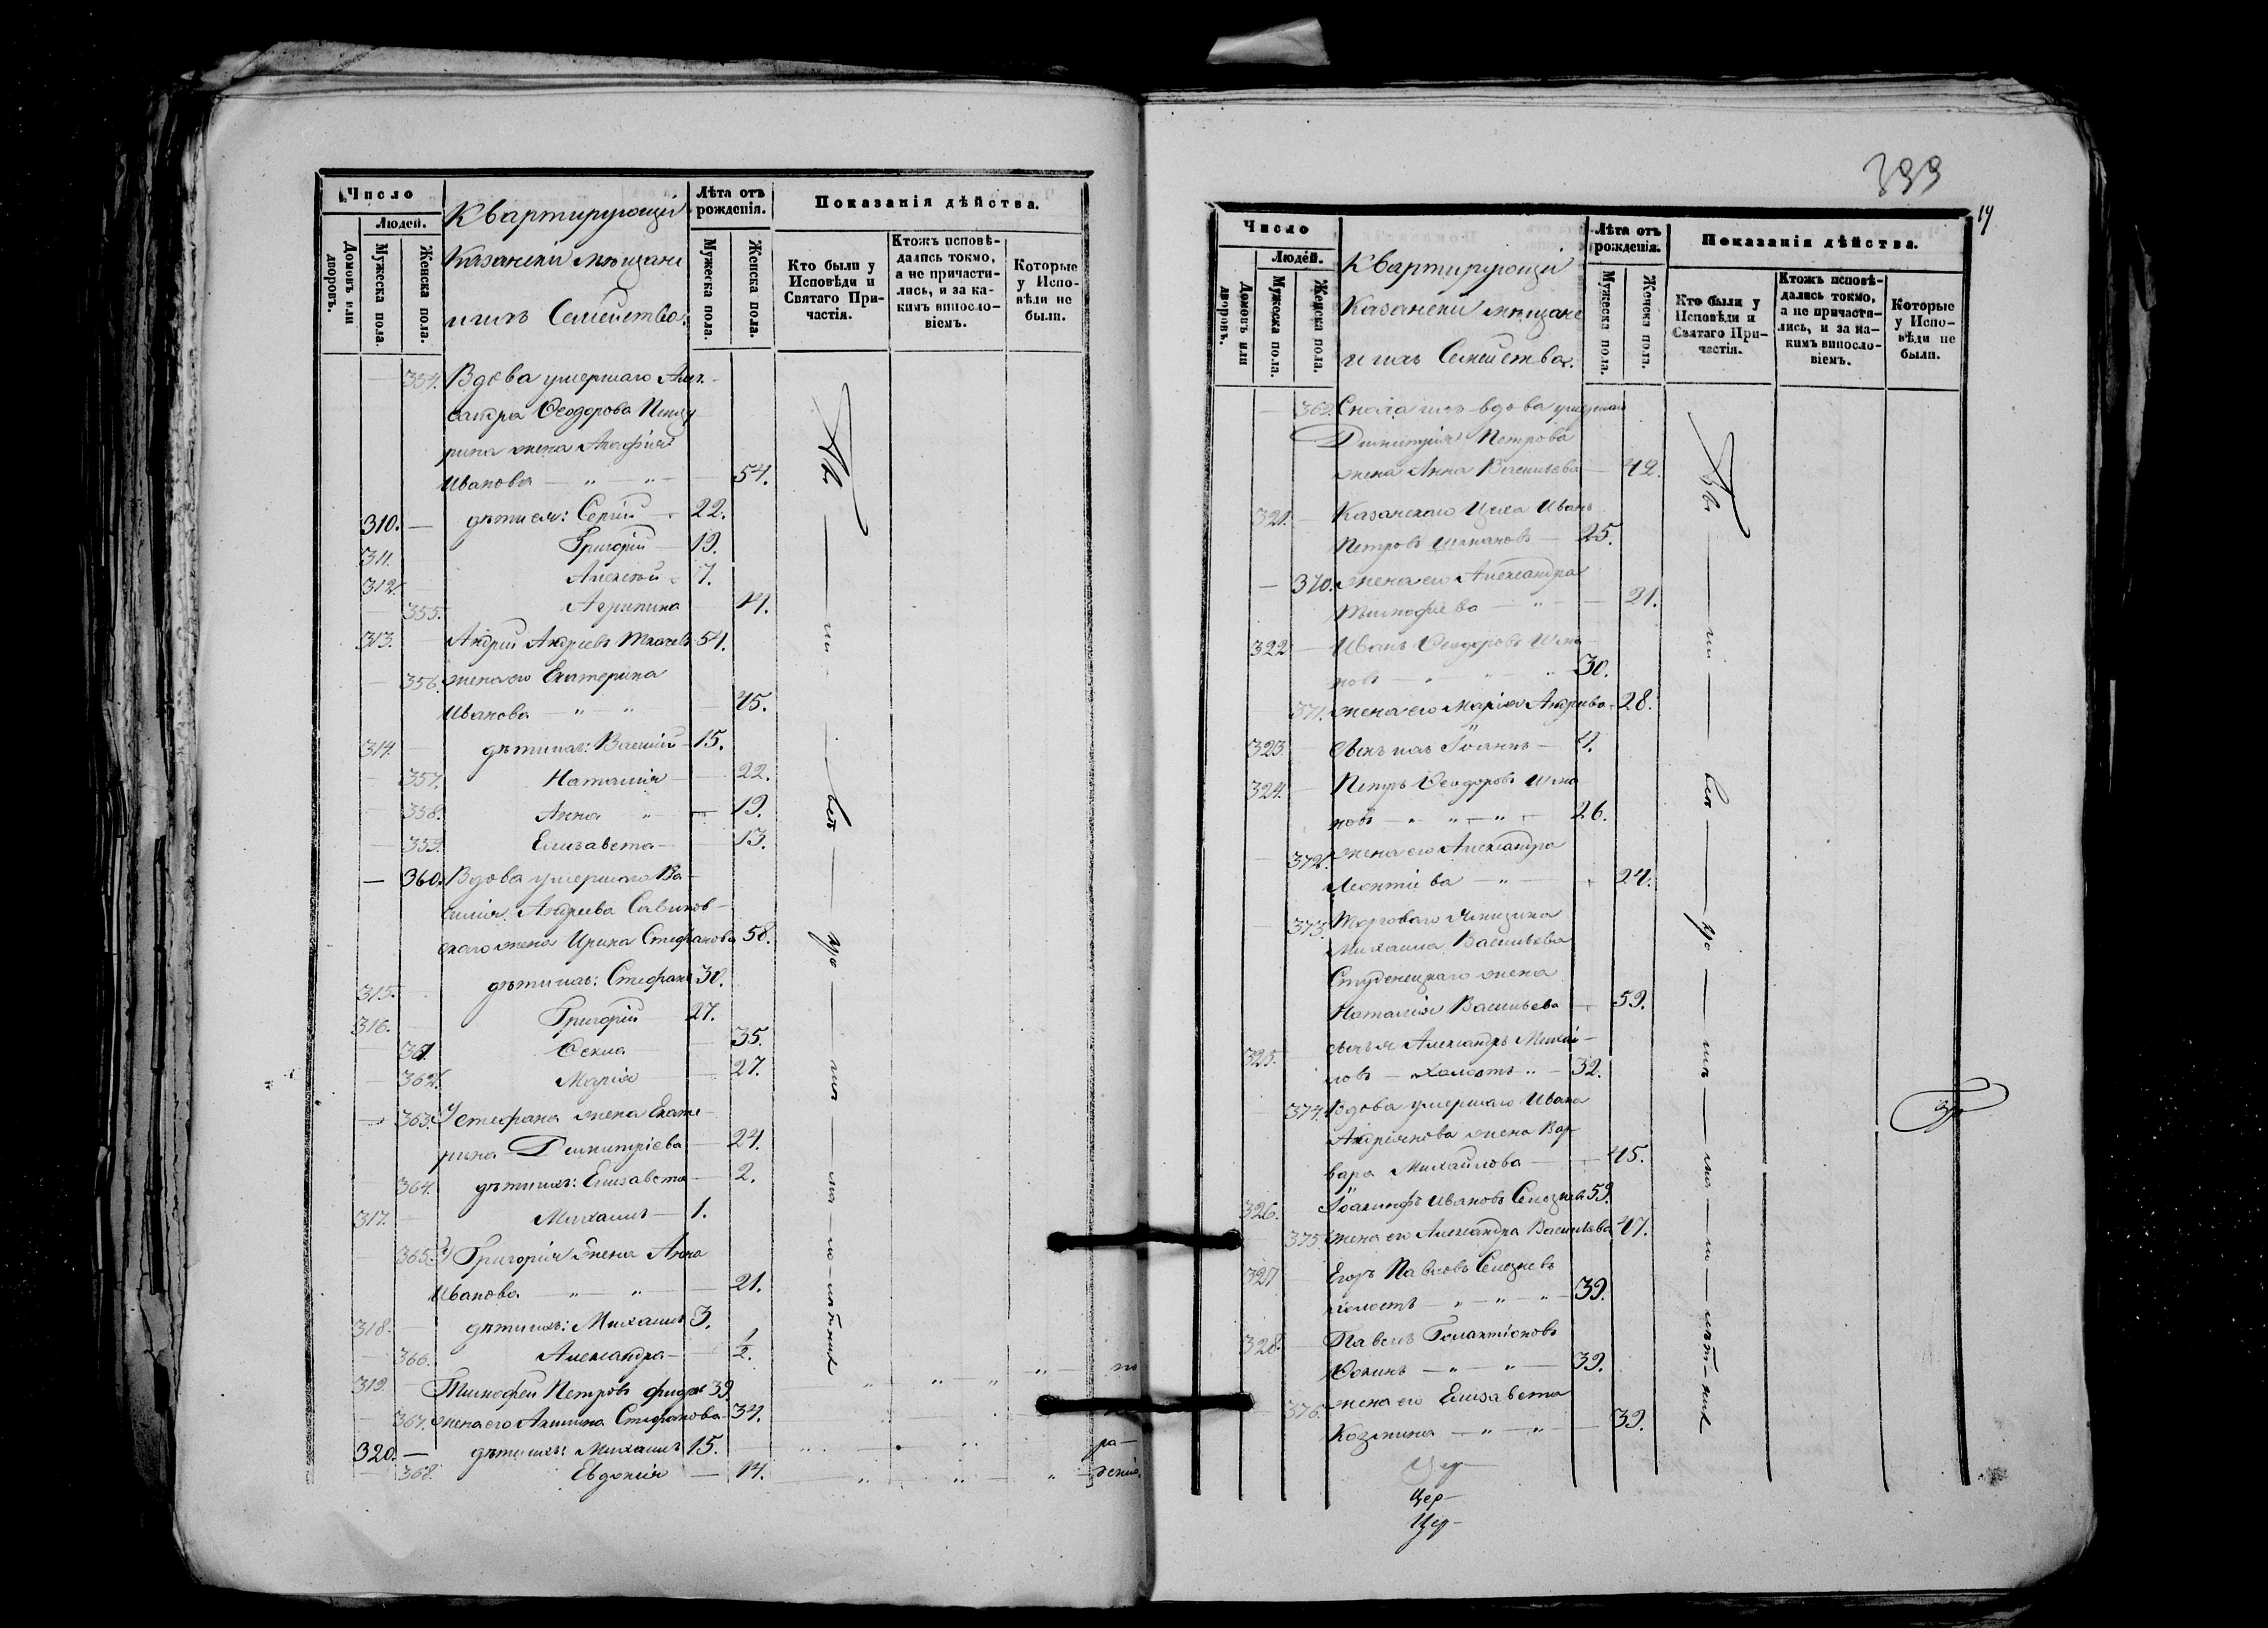 Число
Людей.
Домовъ или дворовъ.
Мужеска пола.
Женска пола.
Квартирующіи
Казанскіи мѣщане
и ихъ Семейства.
Лѣта отъ рожденія.
Мужеска пола.
Женска пола.
Показанія дѣйства.
Кто были у Исповѣди и Святаго Причастія.
Ктожъ исповѣдались токмо, а не причастились, и за какимъ винословіемъ.
Которые у Исповѣди не были.
354. Вдова умершаго Алек-
сандра Ѳеодорова
жена Агафія
Иванова — „ — „ — 54.
310. — дѣти ея: Сергій — 22.
311. Григорій — 19.
312. Алексѣй 7.
355. Агрипина 14.
313. Андрей Андреевъ 54.
356. жена его Екатерина
Иванова — „ — „ 45.
314. дѣти ихъ: Василій — 15.
357. Наталія — 22.
358. Анна „ — 19.
359. Елизавета — 13.
— 360. Вдова умершаго Ва-
силія Андреева Савинов-
скаго жена Ирина Стефанова 58.
315. дѣти ихъ: Стефанъ 30.
316. Григорій — 27.
361. Ѳекла 35.
362. Марія 27.
363. У Стефана жена Екате-
рина Димитріева — 24.
364. дѣти ихъ: Елизавета — 2.
317. Михаилъ — 1.
365. У Григорія жена Анна
Иванова — „ — „ — 21.
318. дѣти ихъ: Михаилъ 3.
366. Александра — 1/2.
319. Тимофей Петровъ 39.
367. жена его Стефанова — 34.
320. — дѣти ихъ: Михаилъ 15.
368. Евдокія — 14.
399
Число
Людей.
Домовъ или дворовъ.
Мужеска пола.
Женска пола.
Квартирующіи
Казанскіи мѣщане
и ихъ Семейства.
Лѣта отъ рожденія.
Мужеска пола.
Женска пола.
Показанія дѣйства.
Кто были у Исповѣди и Святаго Причастія.
Ктожъ исповѣдались токмо, а не причастились, и за какимъ винословіемъ.
Которые у Исповѣди не были.
369. Сноха ихъ вдова умершаго
Димитрія Петрова
жена Анна Васильева — 42.
321. Казанскаго Цеха Иванъ
Петровъ — 25.
— 370. жена его Александра
Тимофіева — „ — 21.
322. Иванъ Ѳеодоровъ
новъ — „ — „ 30.
371. жена его Марія Андреева — 28.
323. сынъ ихъ Іоаннъ — 4.
324. Петръ Ѳеодоровъ
новъ — „ — „ — 26.
372. жена его Александра
Леонтіева — „ — 24.
373. Торговаго
Михаила Васильева
Студенецкаго жена
Наталія Васильева 59.
325. сынъ ея Александръ Михай-
ловъ — холостъ „ — 32.
374. Вдова умершаго Ивана
Андріянова жена Вар-
вара Михайлова — 45.
326. Іоакинфъ Ивановъ Селезневъ 59.
375. жена его Александра Васильева 47.
327 Егоръ Павловъ Селезневъ
холостъ — „ — „ — „ — 39.
328. Павелъ Галактіоновъ
— „ — „ — 39.
376. жена его Елизавета
Козмина — „ — „ — 39.
Цер-
Цер-
Цер-